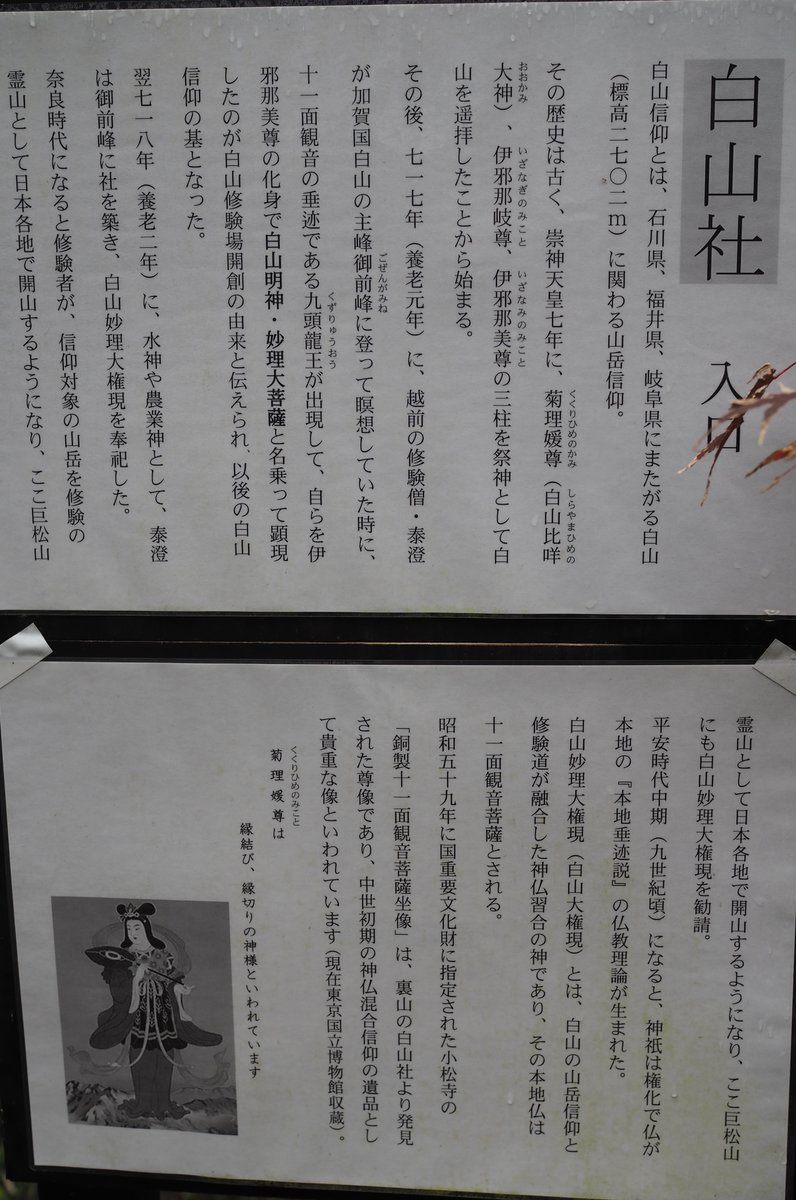 白山社 入口
白山信仰とは、石川県、福井県、岐阜県にまたがる白山
（標高二七〇二ｍ）に関わる山岳信仰。
その歴史は古く、崇神天皇七年に、菊理媛尊（白山比咩
くくりひめのかみ しらやまひめの
大神）、伊邪那岐尊、伊邪那美尊の三柱を祭神として白
おおかみ いざなぎのみこと いざなみのみこと
山を遥拝したことから始まる。
その後、七一七年（養老元年）に、越前の修験僧・泰澄
が加賀国白山の主峰御前峰に登って瞑想していた時に、
ごぜんがみね
十一面観音の垂迹である九頭龍王が出現して、自らを伊
くずりゅうおう
邪那美尊の化身で白山明神・妙理大菩薩と名乗って顕現
したのが白山修験場開創の由来と伝えられ、以後の白山
信仰の基となった。
翌七一八年（養老二年）に、水神や農業神として、泰澄
は御前峰に社を築き、白山妙理大権現を奉祀した。
奈良時代になると修験者が、信仰対象の山岳を修験の
霊山として日本各地で開山するようになり、ここ巨松山
霊山として日本各地で開山するようになり、ここ巨松山
にも白山妙理大権現を勧請。
平安時代中期（九世紀頃）になると、神祇は権化で仏が
本地の『本地垂迹説』の仏教理論が生まれた。
白山妙理大権現（白山大権現）とは、白山の山岳信仰と
修験道が融合した神仏習合の神であり、その本地仏は
十一面観音菩薩とされる。
昭和五十九年に国重要文化財に指定された小松寺の
「銅製十一面観音菩薩坐像」は、裏山の白山社より発見
された尊像であり、中世初期の神仏混合信仰の遺品とし
て貴重な像といわれています（現在東京国立博物館収蔵）。
菊理媛尊は
くくりひめのみこと
縁結び、縁切りの神様といわれています